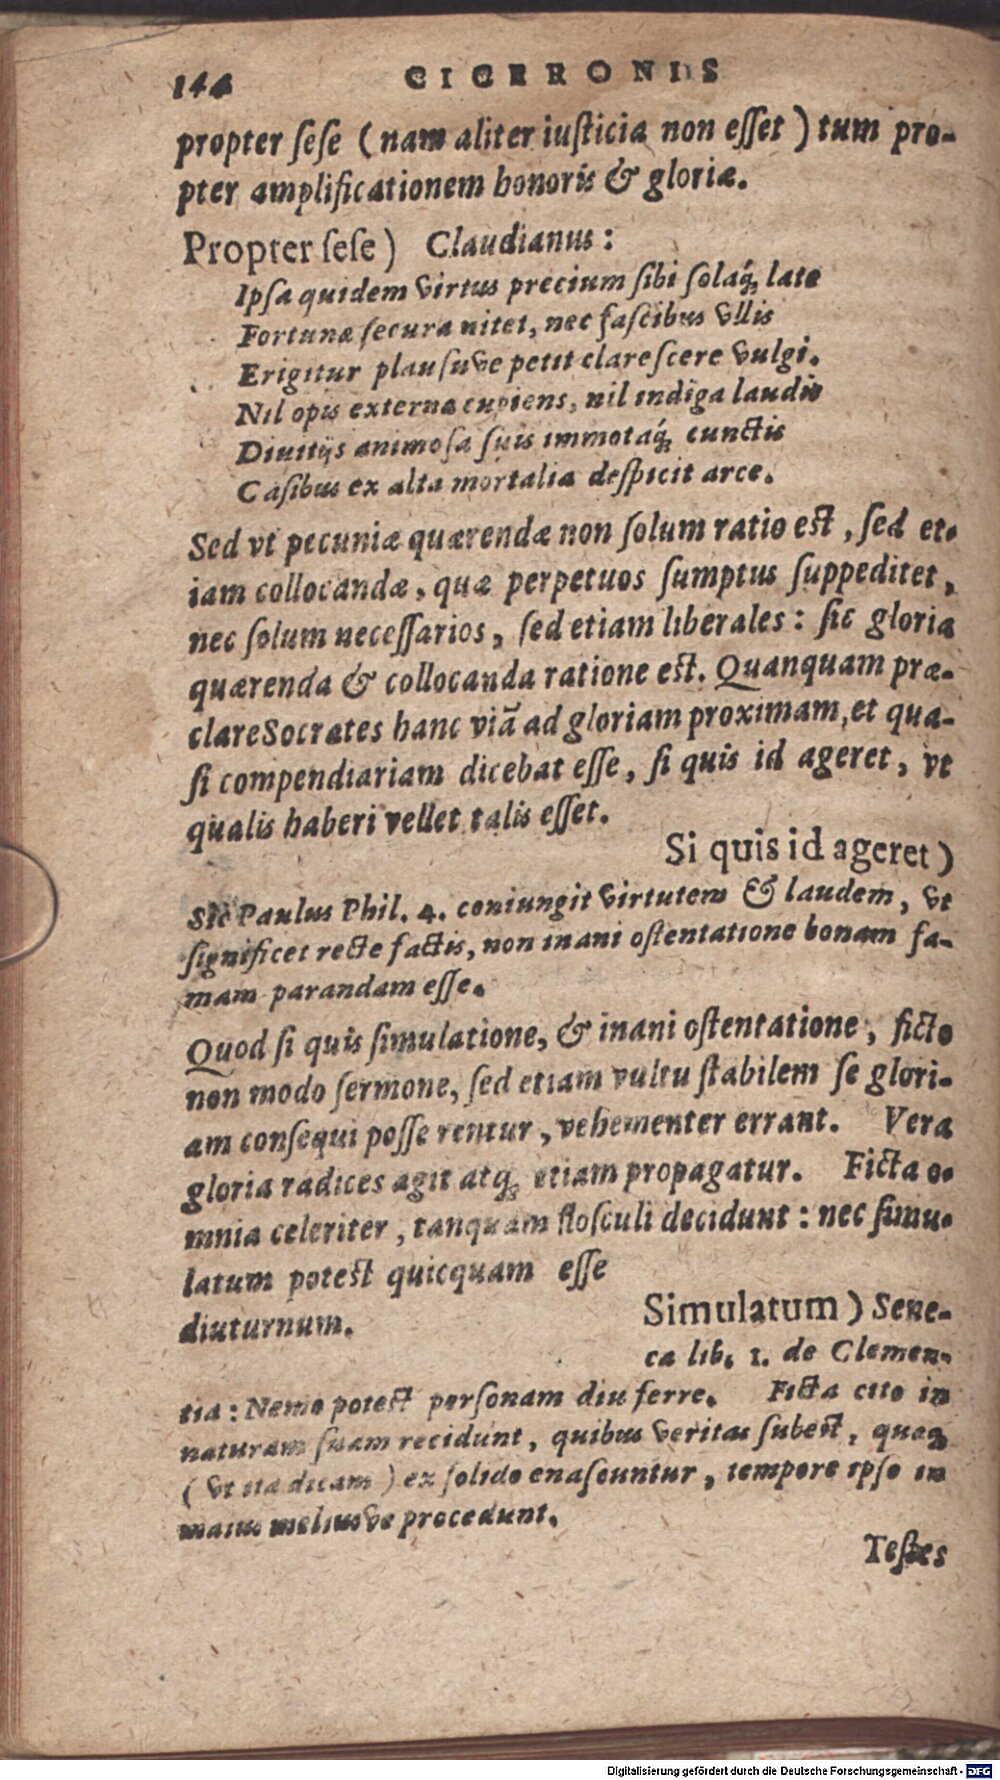 144 CICERONIS
propter ſeſe (nam aliter iuſticia non eſſet) tum pro-
pter amplificationem honoris & gloriæ.
Propter ſeſe) Claudianus:
Ipſa quidem virtus precium ſibi ſolaq́; late
Fortunæ ſecura nitet, nec faſcibus vllis
Erigitur plauſuve petit clareſcere vulgi.
Nil opis externæ cupiens, nil indiga laudis
Diuitijs animoſa ſuis immotaq́; cunctis
Caſibus ex alta mortalia deſpicit arce.
Sed vt pecuniæ quærendæ non ſolum ratio eſt, ſed et-
iam collocandæ, quæ perpetuos ſumptus ſuppeditet,
nec ſolum neceſſarios, ſed etiam liberales: ſic gloria
quærenda & collocanda ratione eſt. Quanquam præ-
clare Socrates hanc viā ad gloriam proximam, et qua-
ſi compendiariam dicebat eſſe, ſi quis id ageret, vt
qualis haberi vellet talis eſſet.
Si quis id ageret)
Sic Paulus Phil. 4. coniungit virtutem & laudem, vt
ſignificet recte factis, non inani oſtentatione bonam fa-
mam parandam eſſe.
Quod ſi quis ſimulatione, & inani oſtentatione, ficto
non modo ſermone, ſed etiam vultu ſtabilem ſe glori-
am conſequi poſſe rentur, vehementer errant. Vera
gloria radices agit atq; etiam propagatur. Ficta o-
mnia celeriter, tanquam floſculi decidunt: nec ſimu-
latum poteſt quicquam eſſe
diuturnum.
Simulatum) Sene-
ca lib. 1. de Clemen-
tia: Nemo poteſt perſonam diu ferre. Ficta cito in
naturam ſuam recidunt, quibus veritas ſubeſt, quæq;
(vt ita dicam) ex ſolido enaſcuntur, tempore ipſo in
maius meliusve procedunt.
Teſtes
Digitalisierung gefördert durch die Deutsche Forschungsgemeinschaft - DFG